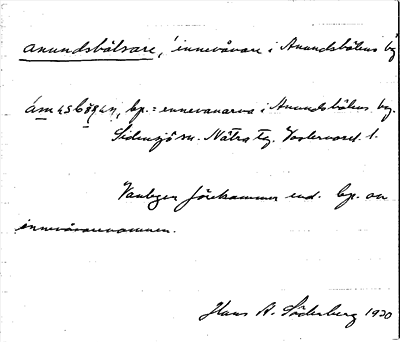 anundsbölsare, innevånare i Anundsböles by
bp. = innevånarna i Anundsböles by.
Sidensjö sn. Nätra tg. Västernorrl. l.
Vanligen förekommer end. bp. av
innevånarenamnen.
Hans A. Söderberg 1920